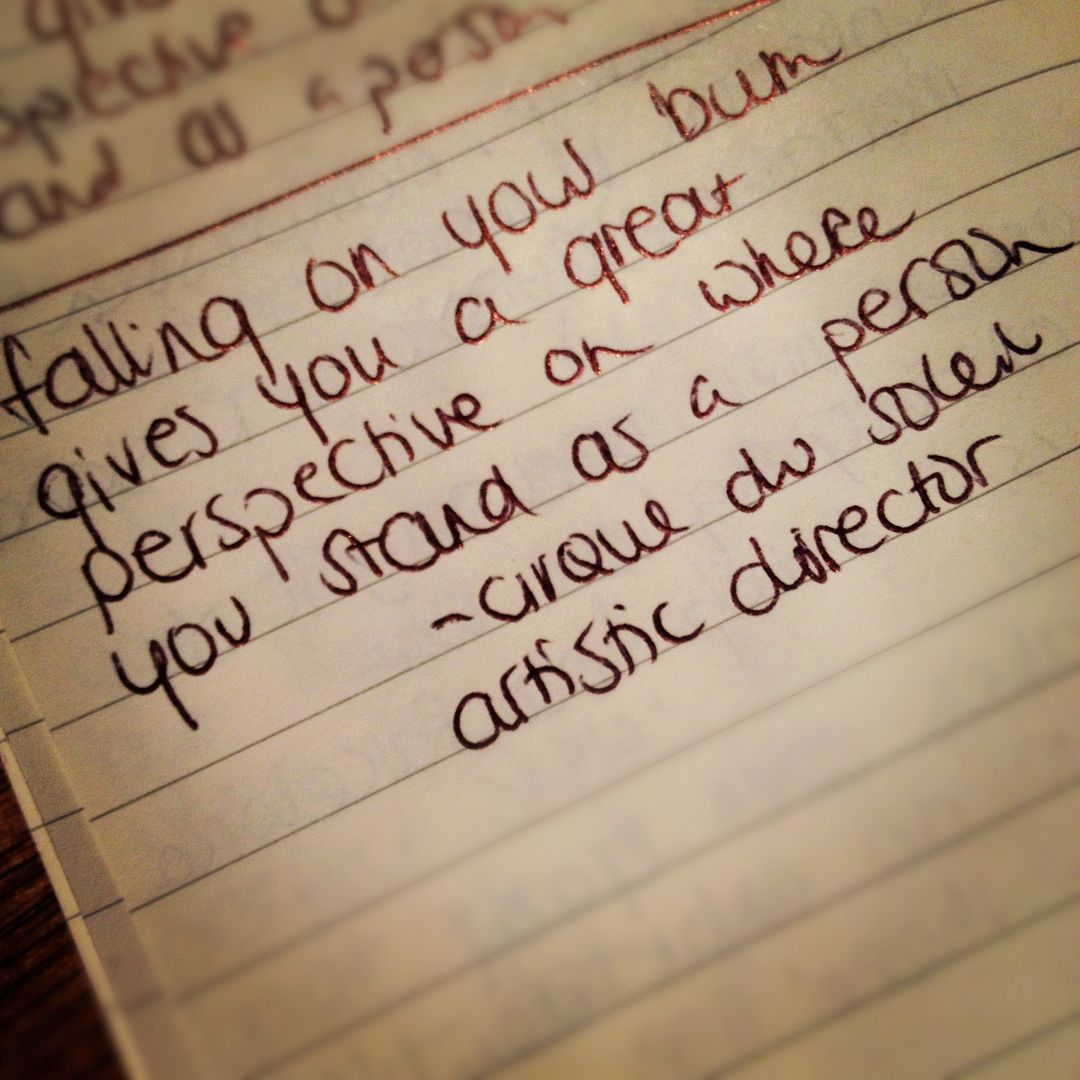 spective
and as a person
falling on your bum
gives you a great
perspective on where
you stand as a person
-cirque du soleil
artistic director